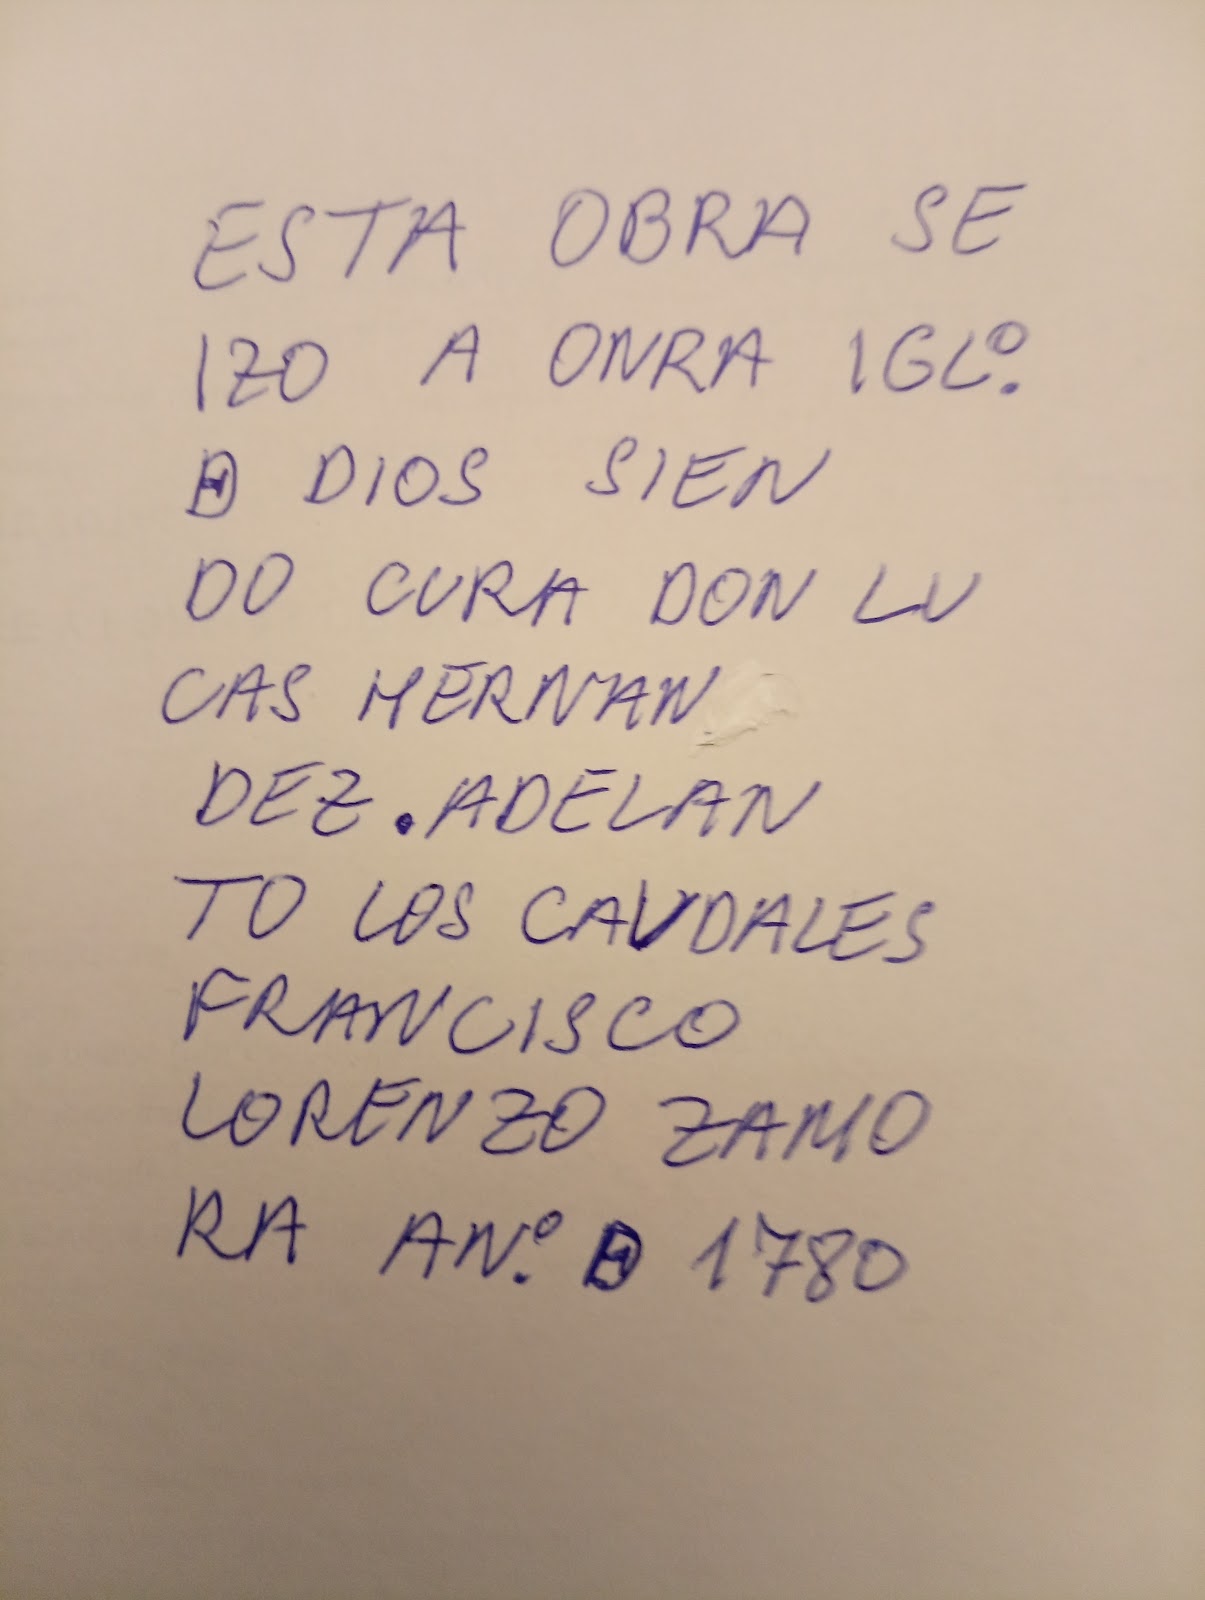 ESTA OBRA SE
IZO A ONRA IGLº.
D DIOS SIEN
DO CURA DON LU
CAS HERNAN
DEZ . ADELAN
TO LOS CAUDALES
FRANCISCO
LORENZO ZAMO
RA AN.º D 1780